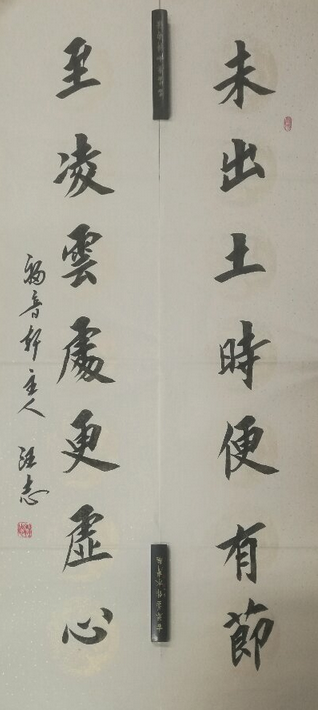 未出土時便有節
至凌雲處更虛心
軒主人 汪志